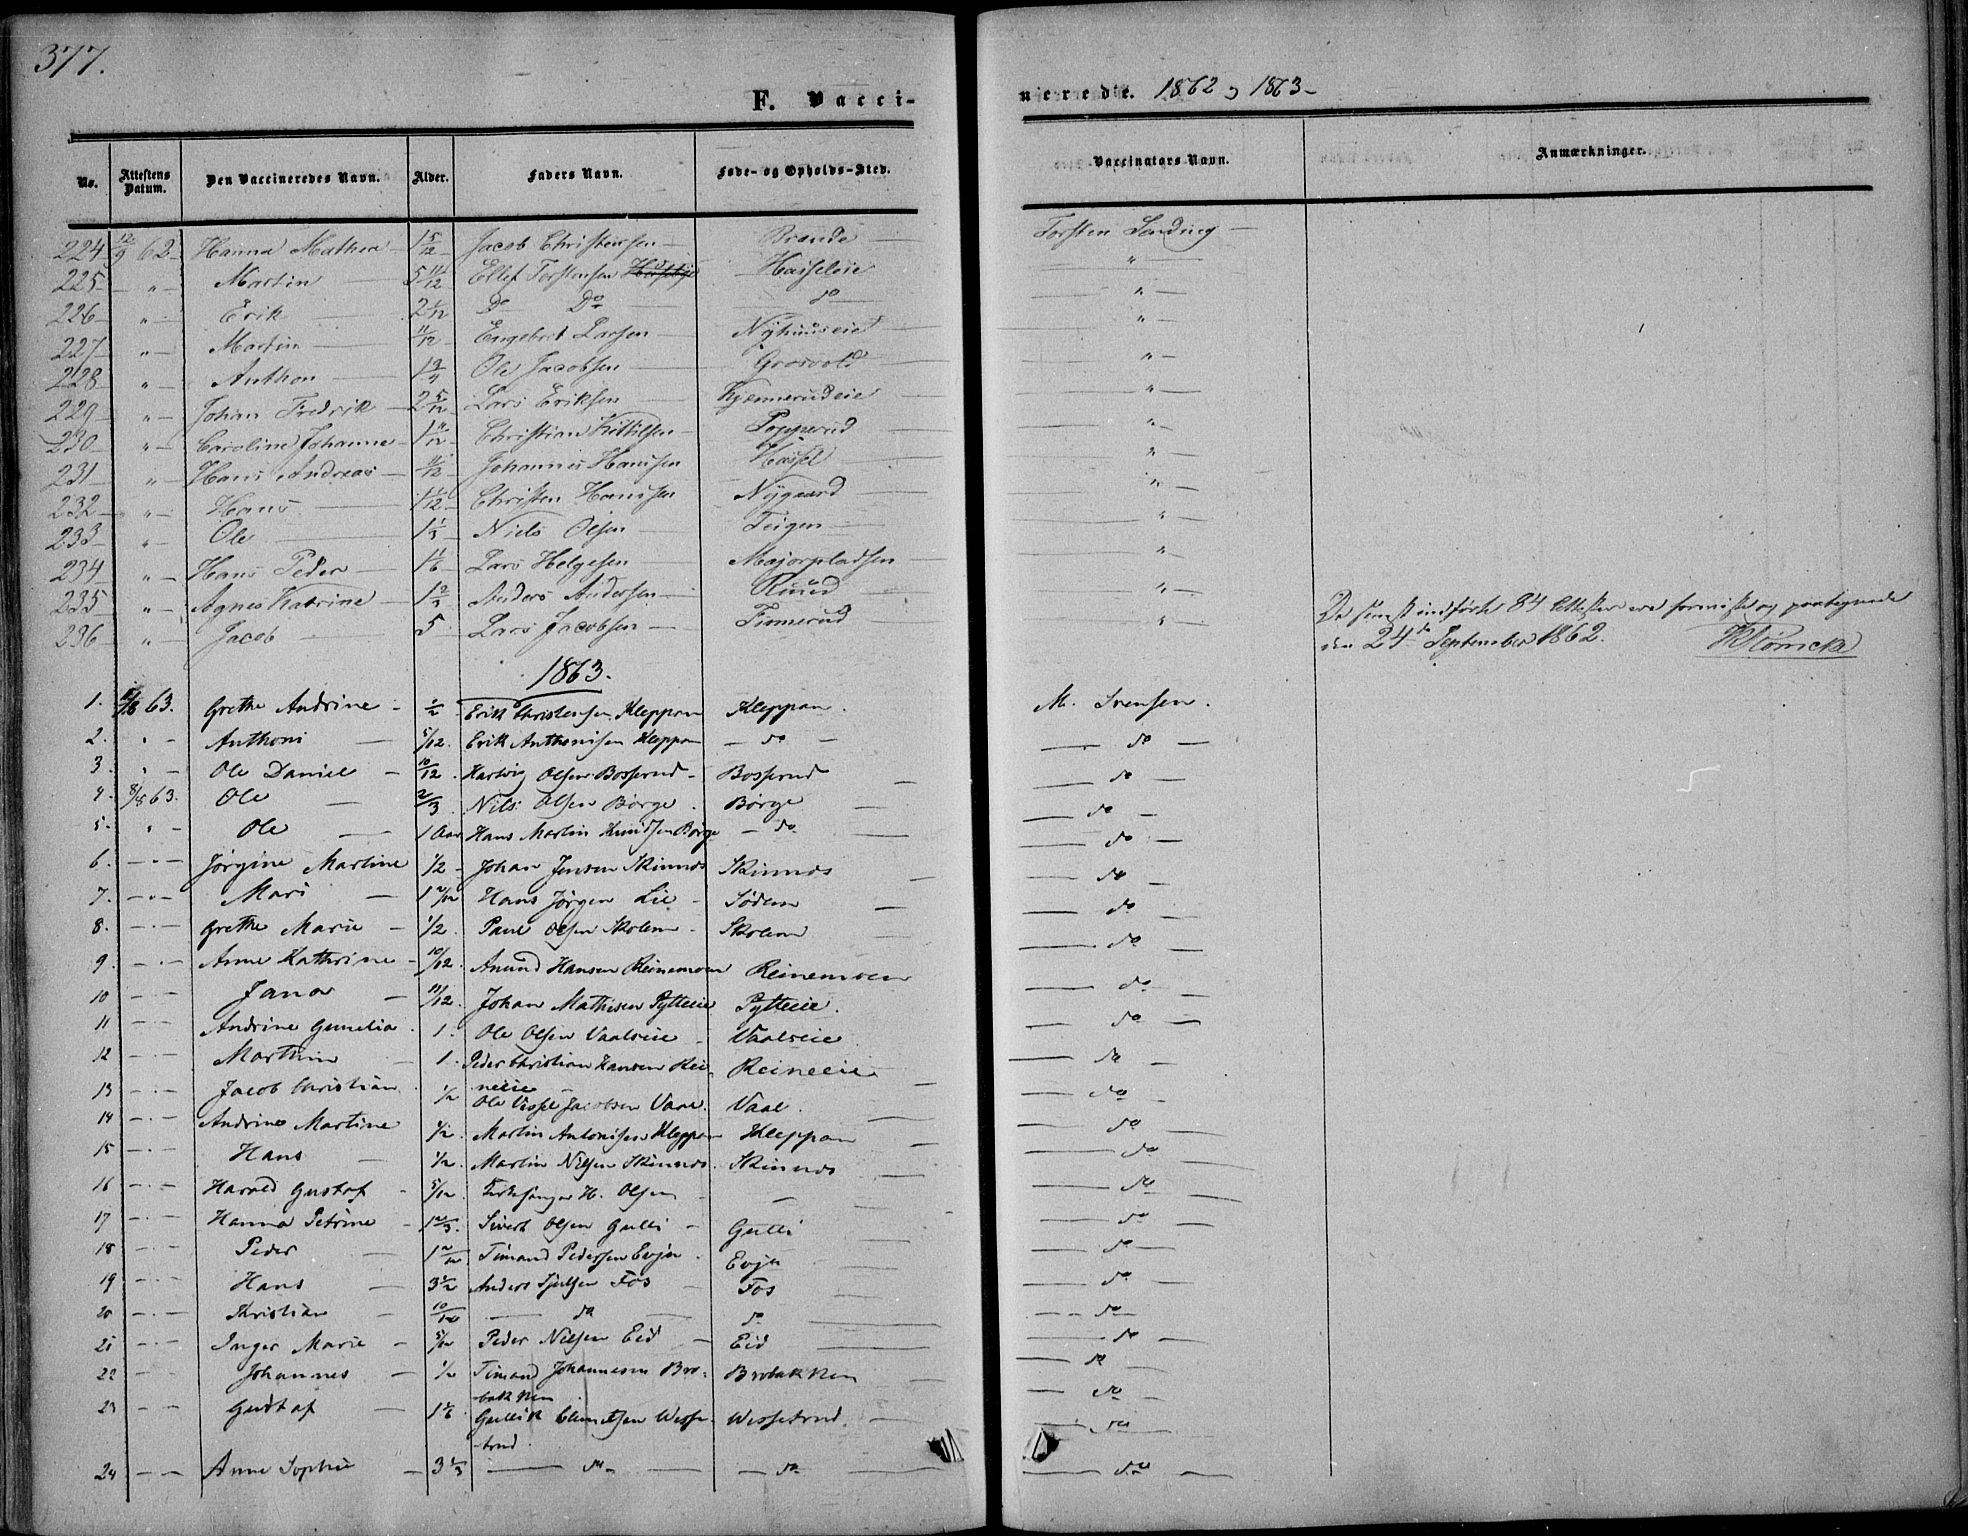 377.
F. Vaccinerede. 1862 og 1863
No. Attestens Datum. Den Vaccineredes Navn. Alder. Faders Navn. Føde- og Opholds-Sted. Vaccinators Navn. Anmærkninger.
224 12/9 62 Hanna Mathea 1 5/12 Jacob Christensen Brænde Torsten
225 " Martin 5 11/12 Ellef Torstensen Hasseleie "
226 " Erik 2 1/12 Do Do do "
227 " Martin 11/12 Engebret Larsen Nyhuuseie "
228 " Anthon 1 3/4 Ole Jacobsen Grosvold "
229 " Johan Fredrik 2 5/12 Lars Eriksen Kjennerudeie "
230 " Caroline Johanne Christian Kittilsen Popperud "
231 " Hans Andreas 11/12 Johannes Hansen Hassel "
232 " Hans 1 1/12 Christen Hansen Nygaard "
233 " Ole 1 1/3 Niels Olsen Teigen "
234 " Hans Peder 1 1/6 Lars Helgesen Majorpladsen "
235 " Agnes Katrine 1 2/3 Anders Andersen Ruud "
236 " Jacob 5 Lars Jacobsen Finnerud "
De sidst indførte 84 Attester ere foreviste og paategnede
den 24de September 1862.
1863.
1. 63. Grethe Andrine 1/2 Erik Christensen Kleppan Kleppan. M. Svensen.
2. " Anthoni 5/12. Erik Anthonisen Kleppan do do
3. " Ole Daniel 10/12. Hartvig Olsen Bosserud Bosserud do
4. 8/8 63. Ole 2/3 Nils Olsen Børge Børge do
5. " Ole 1 Aar Hans Martin Knudsen Børge do do
6. " Jørgine Martine 1/2 Johan Jensen Skinnes Skinnes do
7. " Mari 1 2/12 Hans Jørgen Lie Sødem do
8. " Grethe Marie 1/2 Paul Olsen Skolem Skolem do
9. " Anne Kathrine 10/12. Anund Hansen Reinemoen Reinemoen do
10 " Jana 11/12. Johan Mathisen Pytteeie Pytteeie. do
11 " Andrine Gunelia 1. Ole Olsen Vaalseie Vaalseie do
12 " Marthin 1. Peder Christian Hansen Reineeie Reineeie do
13 " Jacob Christian 1/2 Ole Jacobsen Vaal. Vaal. do
14 " Andrine Martine 1/2. Martin Antonisen Kleppan Kleppan do
15 " Hans 1/2. Martin Nilsen Skinnes. Skinnes do
16 " Harald Gustaf 5/12. Kirkesanger H. Olsen — do
17 " Hanna Petrine 1 2/3. Sivert Olsen Gulli Gulli do
18 " Peder 1 2/12 Timand Pedersen Evju Evju do
19 " Hans 3 1/2 Anders Fos Fos do
20 " Christian 10/12 do do do
21 " Inger Marie 5/12 Peder Nielsen Eid Eid do
22 " Johannes 1/2 Timand Johannesen Brobakken Brobakken do
23 " Gustaf 1 1/6. Gullik Clemetsen Wessetrud. Wessetrud. do
24 " Anne Sophie 3 1/3 do do do